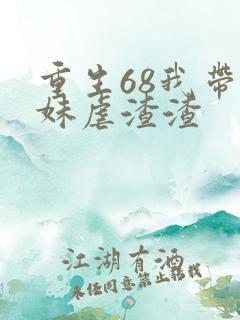 重生68我带
妹虐渣渣
江湖有酒
未经同意禁止转载